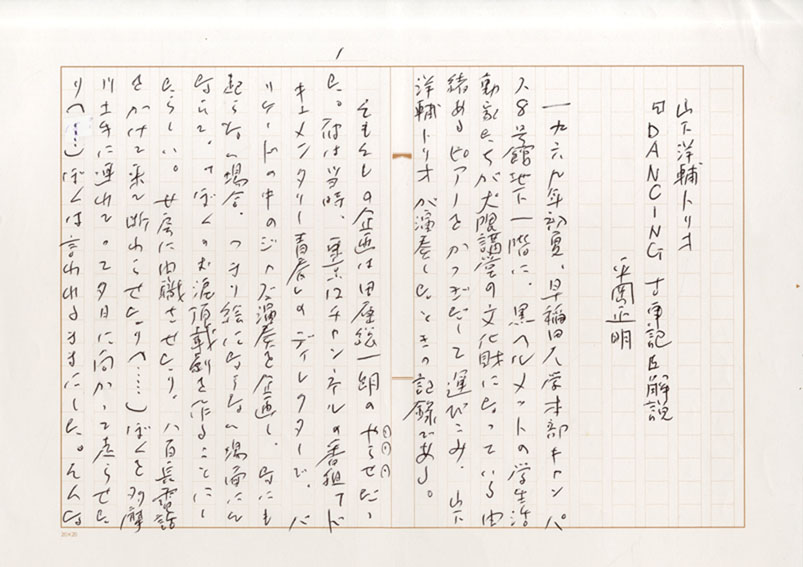 1
山下洋輔トリオ
『DANCING古事記』解説
平岡正明
一九六九年初夏、早稲田大学本部キャンパ
ス8号館地下一階に、黒ヘルメットの学生活
動家たちが大隈講堂の文化財になっている由
緒あるピアノをかつぎだして運びこみ、山下
洋輔トリオが演奏したときの記録である。
そもそもこの企画は田原総一朗のやらせだっ
た。彼は当時、東京12チャンネルの番組『ド
キュメンタリー青春』のディレクターで、バ
リケードの中のジャズ演奏を企画し、なにも
起らない場合、つまり絵にならない場面にそ
なえて、「ぼくのお涙頂戴劇を作ることにし
たらしい。女房に内職させたり、八百長電話
をかけて来て断わらせたり(……)ぼくを多摩
川土手に連れてって夕日に向かって走らせた
り(……)ぼくは言われるままにした。そんな
20×20